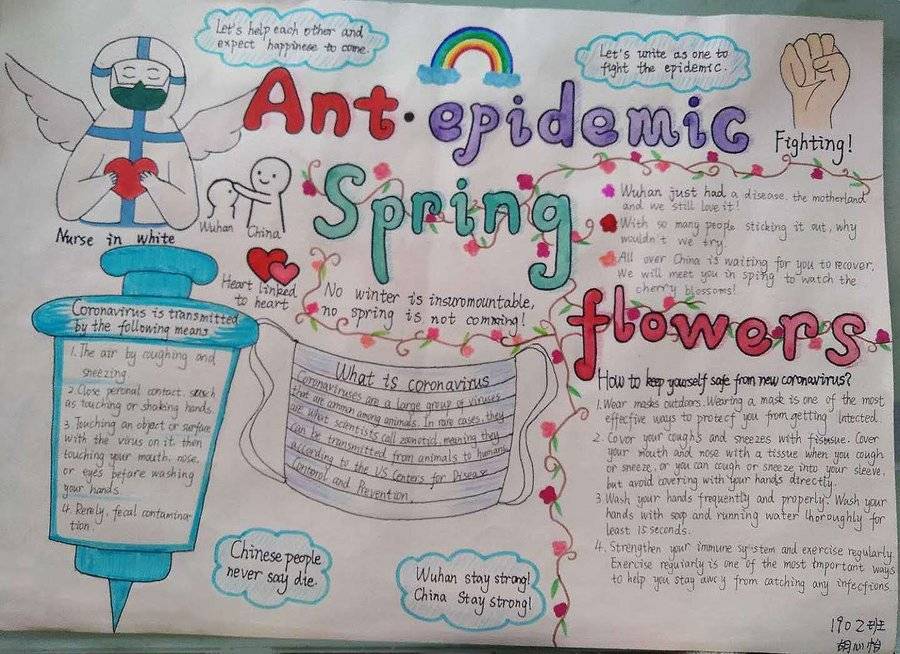 Let's help each other and
expect happinese to come.
Let's unite as one to
fight the epidemic.
Ant·epidemic
Fighting!
Spring
Nurse in white
Wuhan China
Heart linked
to heart
No winter is insuromountable,
no spring is not comming!
Wuhan just had a disease. the motherland
and we still love it!
With so many people sticking it out, why
wouldn't we try.
All over China is waiting for you to recover,
We will meet you in sping to watch the
cherry blossoms!
flowers
Coronavirus is transmitted
by the following means
1. The air by coughing and
sneezing
2. Close personal contact, such
as touching or shaking hands.
3 Touching an object or surface
with the virus on it, then
touching your mouth, nose,
or eyes before washing
your hands.
4. Rerely, fecal contamina-
tion.
What is coronavirus
Coronaviruses are a large group of viruses
that are common among animals. In rare cases, they
are what scientists call zoonotid, meaning they
can be transmitted from animals to humans
according to the US Centers for Disease
Contorol and Prevention.
How to keep yourself safe from new coronavirus?
1. Wear masks outdoors. Wearing a mask is one of the most
effective ways to protect you from getting intected.
2. Covor your coughs and sneezes with Cover
your mouth and nose with a tissue when you cough
or sneeze, or you can cough or sneeze into your sleeve,
but avoid covering with your hands directly.
3 Wash your hands frequently and properly. Wash your
hands with soap and running water thoroughly for
least 15 seconds.
4. Strengthen your immune system and exercise regularly.
Exercise reguiarly is one of the most important ways
to help you stay away from catching any infections.
Chinese people
never say die.
Wuhan stay strong!
China Stay strong!
1902班
胡心怡